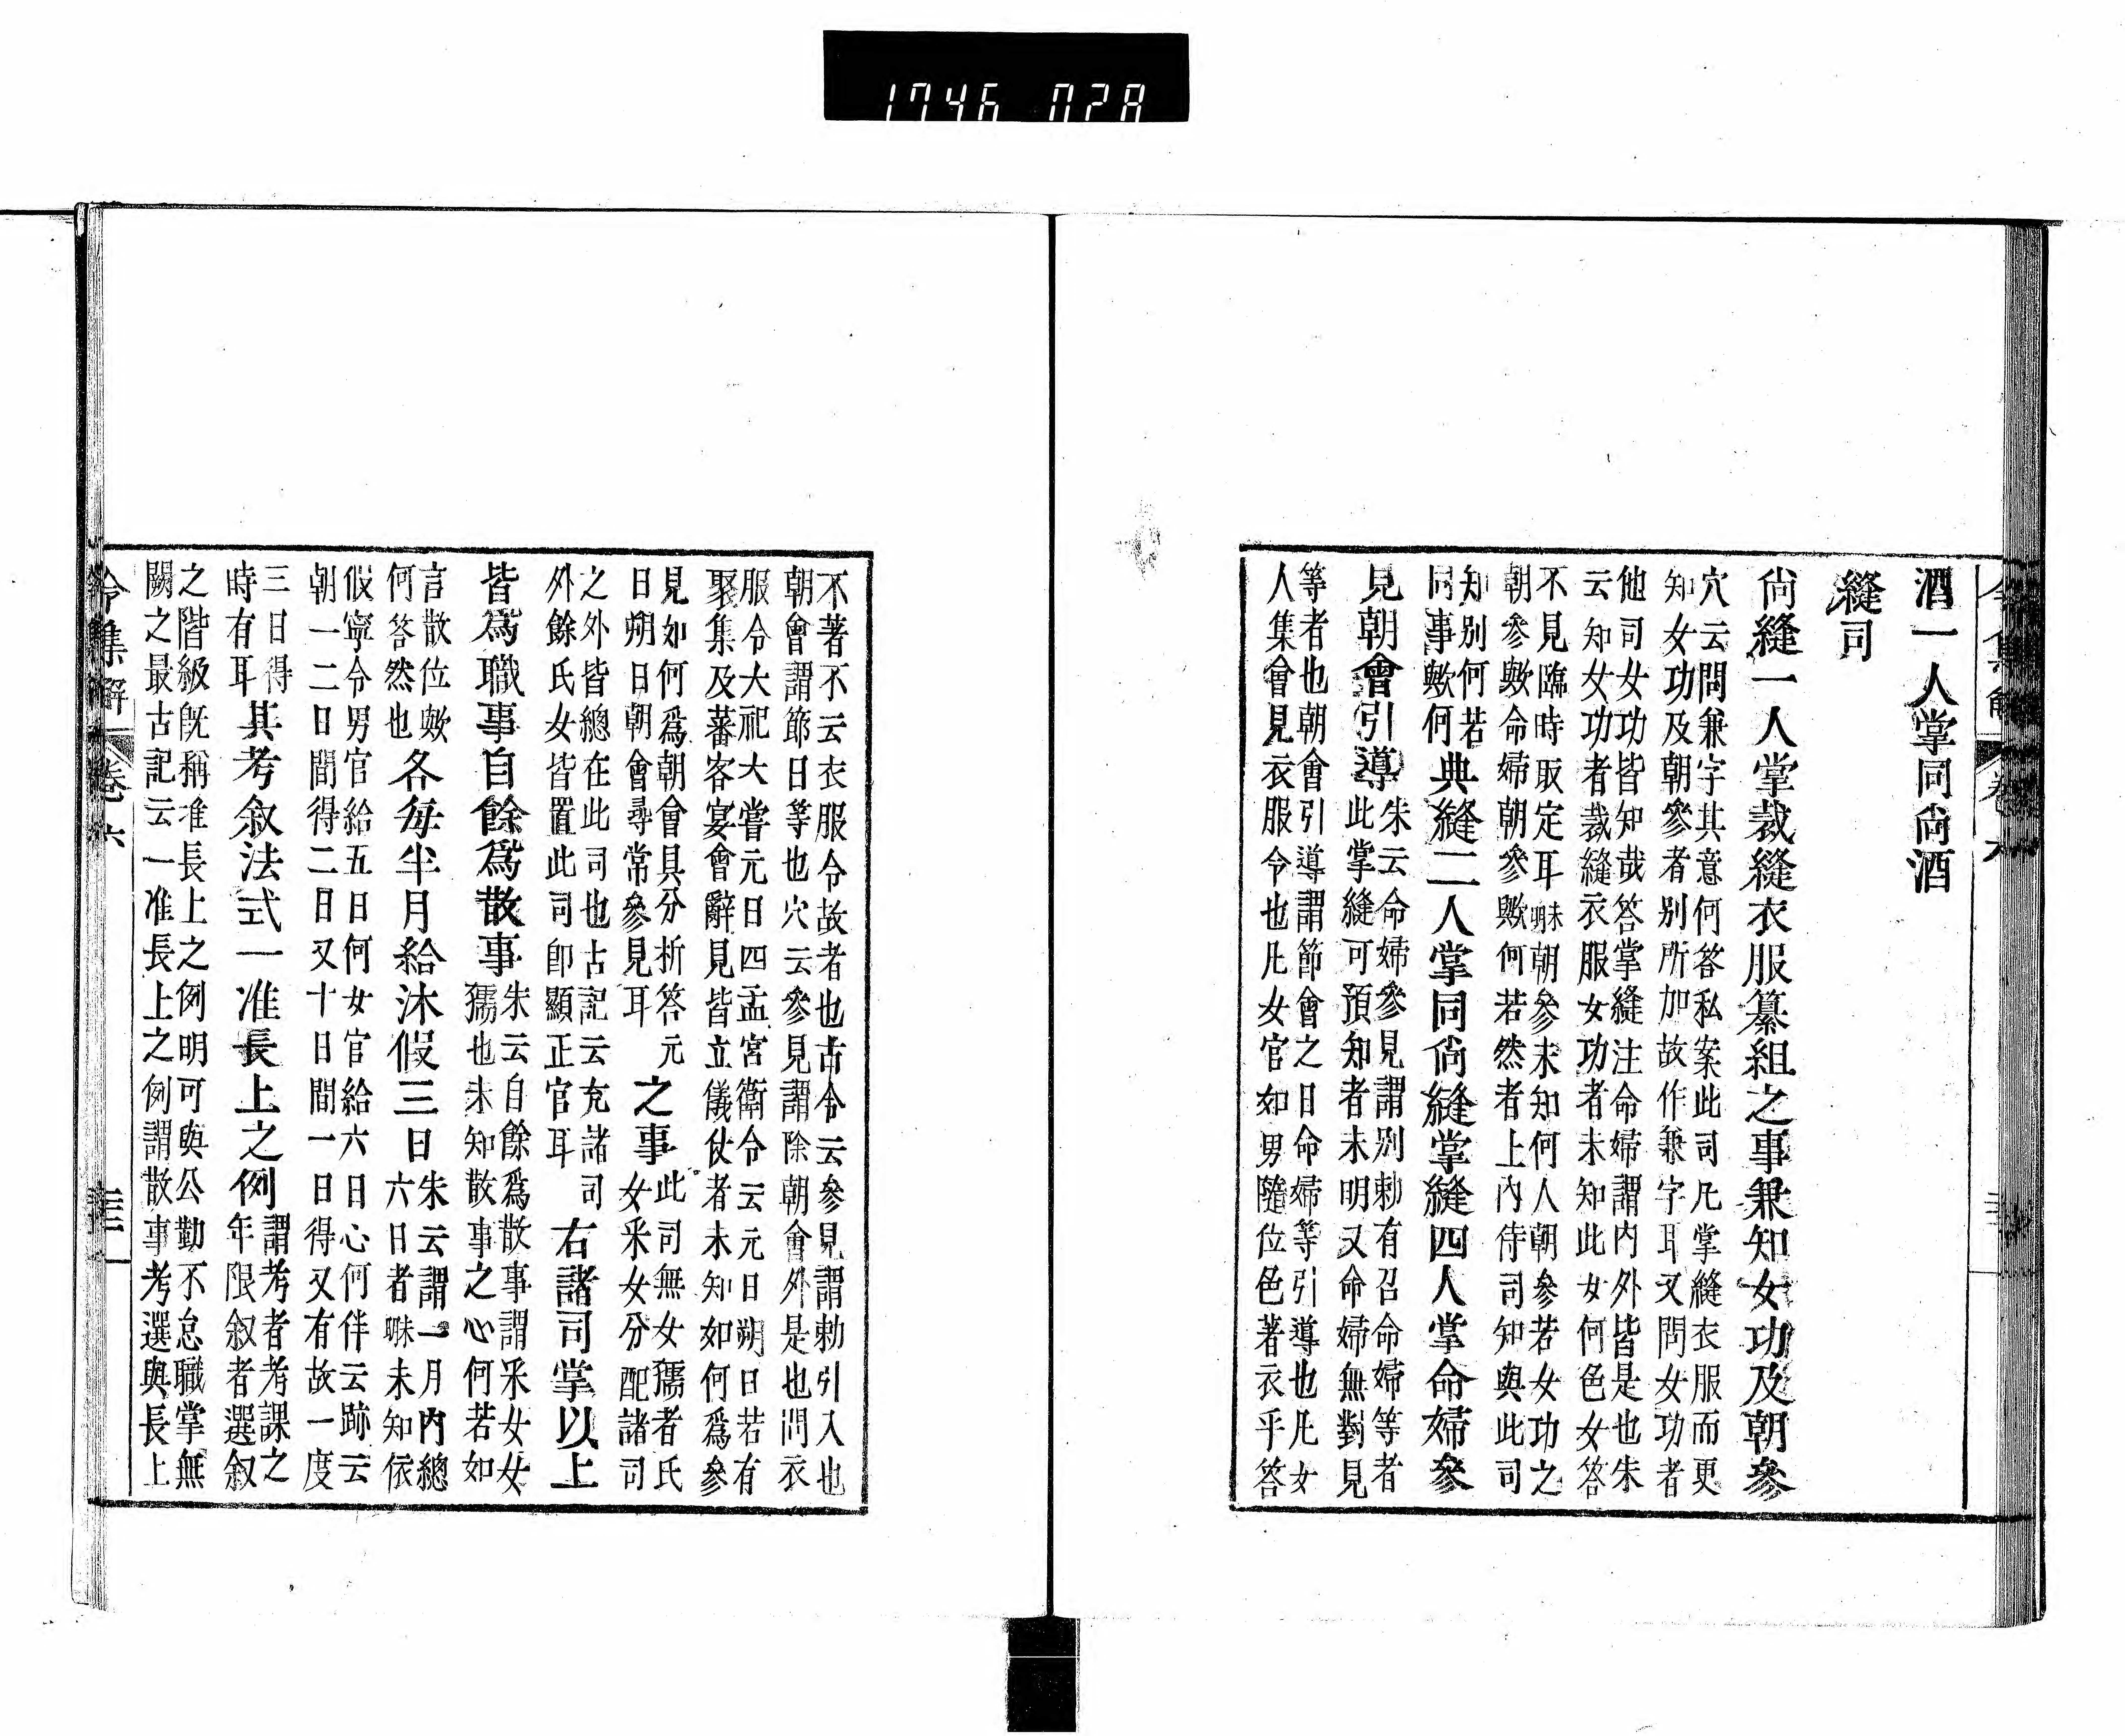 1746 028
酒一人掌同尙酒
縫司
尙縫一人掌裁縫衣服纂組之事兼知女功及朝參
穴云問兼字其意何答私案此司凡掌縫衣服而更
知女功及朝參者別所加故作兼字耳又問女功者
他司女功皆知哉答掌縫注命婦謂内外皆是也朱
云知女功者裁縫衣服女功者未知此女何色女答
不見臨時取定耳朱昧朝參未知何人朝參若女功之
朝參歟命婦朝參歟何若然者上内侍司知與此司
知別何若
同事歟何
典縫二人掌同尙縫掌縫四人掌命婦參
見朝會引導
朱云命婦參見謂別勅有召命婦等者
此掌縫可預知者未明又命婦無對見
等者也朝會引導謂節會之日命婦等引導也凡女
人集會見衣服令也凡女官如男隨位色著衣乎答
不著不云衣服令故者也古令云參見謂勅引入也
朝會謂節日等也穴云參見謂除朝會外是也問衣
服令大祀大嘗元日四孟宮衛令云元日朔日若有
聚集及蕃客宴會辭見皆立儀仗者未知如何爲參
見如何爲朝會具分析答元
日朔日朝會尋常參見耳
之事
此司無女孺者氏
女釆女分配諸司
之外皆總在此司也古記云充諸司
外餘氏女皆置此司卽顯正官耳
右諸司掌以上
皆爲職事自餘爲散事
朱云自餘爲散事謂釆女女
孺也未知散事之心何若如
言散位歟
何答然也
各每半月給沐假三日
朱云謂一月内總
六日者朱昧未知依
假寧令男官給五日何女官給六日心何伴云跡云
朝一二日間得二日又十日間一日得又有故一度
三日得
時有耳
其考叙法式一准長上之例
謂考者考課之
年限叙者選叙
之階級旣稱准長上之例明可與公勤不怠職掌無
闕之最古記云一准長上之例謂散事考選與長上
令集解 卷六